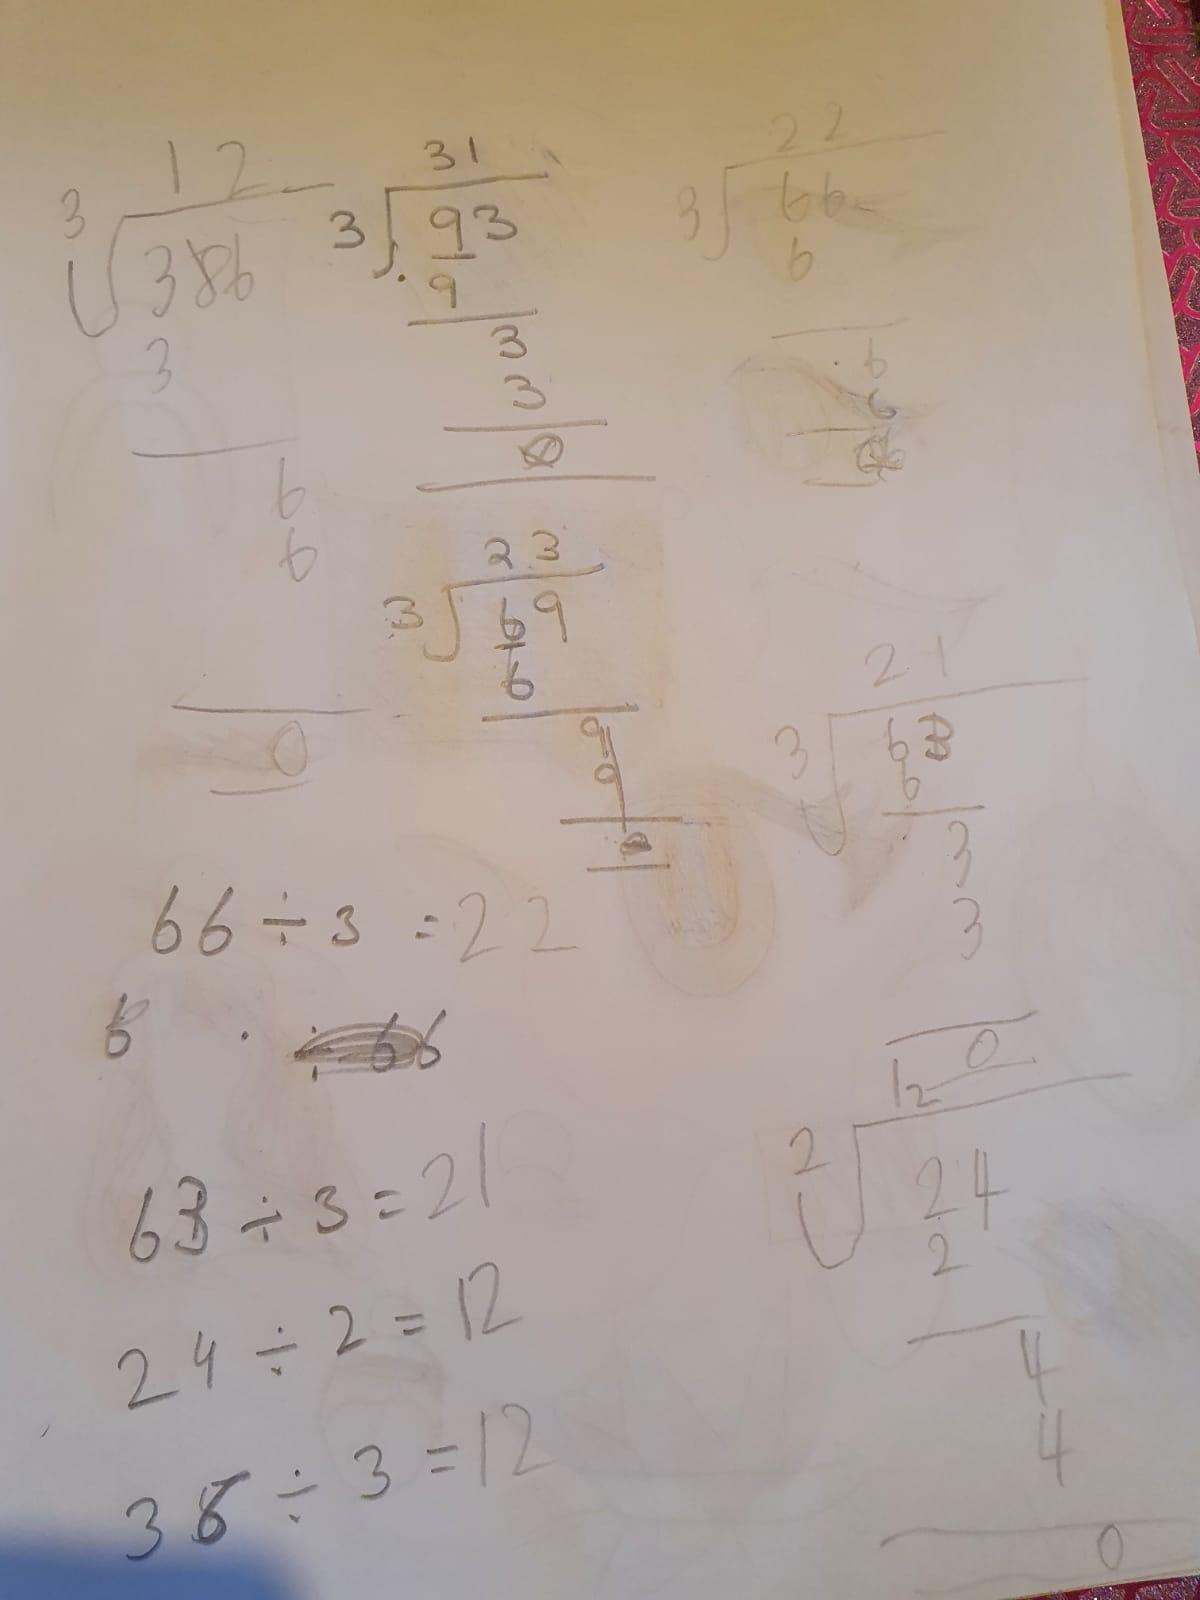 12
3 36
3
6
6
0
31
3 93
9
3
3
0
22
3 66
6
6
6
0
23
3 69
6
9
9
0
21
3 63
6
3
3
0
12
2 24
2
4
4
0
66 ÷ 3 = 22
6
63 ÷ 3 = 21
24 ÷ 2 = 12
36 ÷ 3 = 12